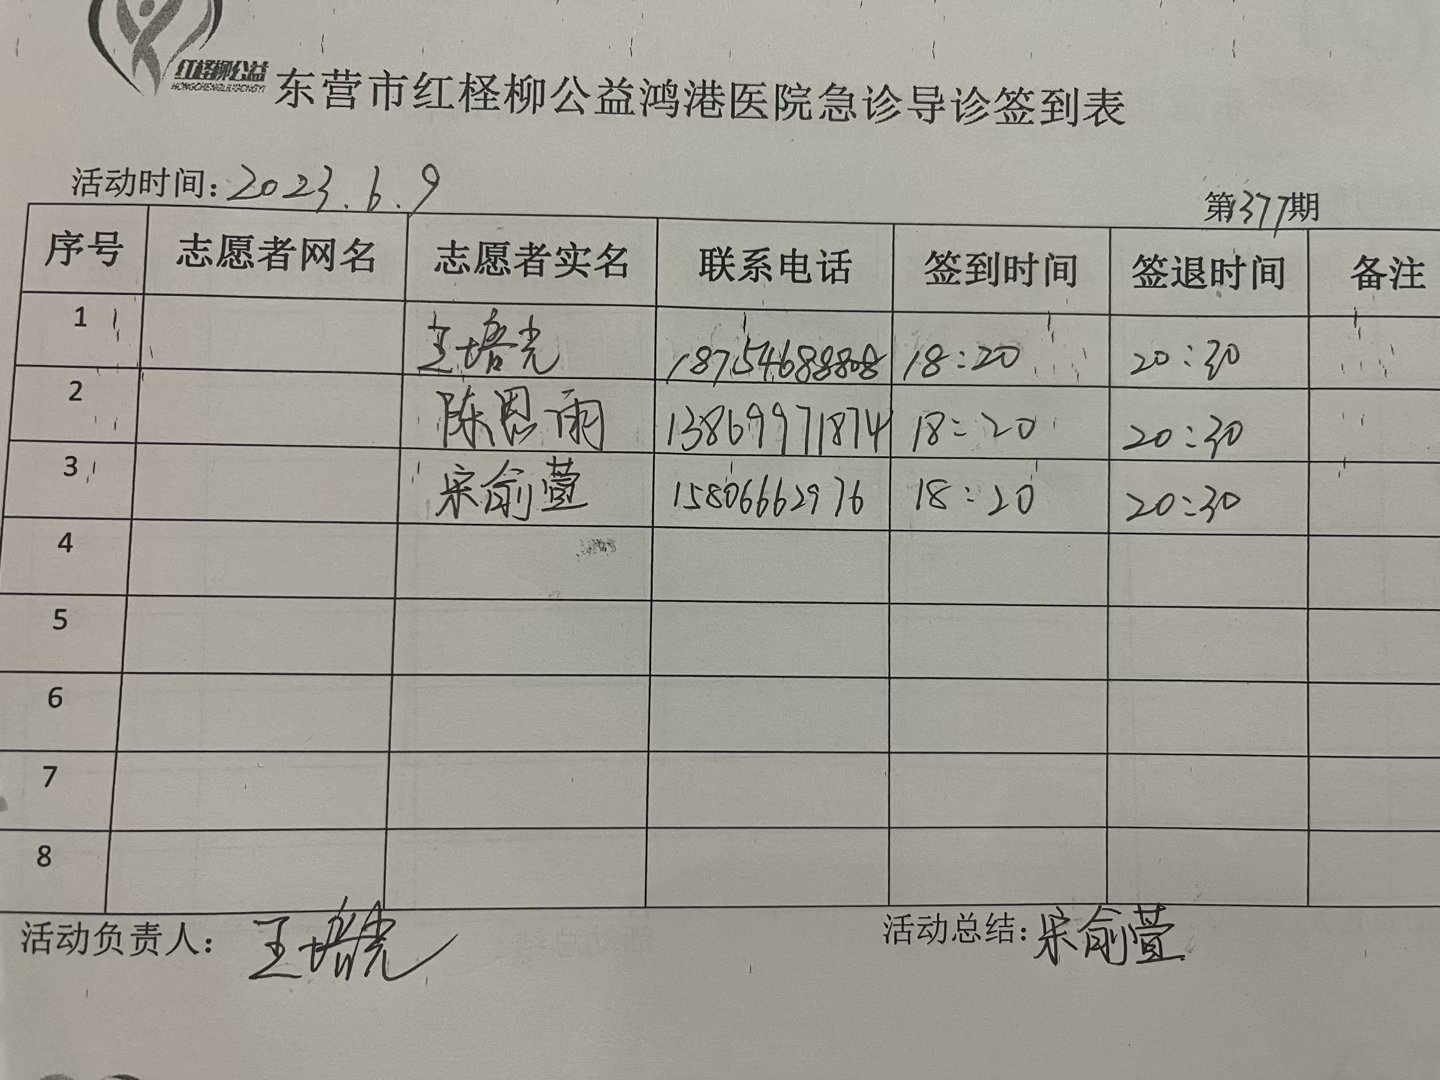 红柽柳公益
HONGCHENGLIUGONGYI
东营市红柽柳公益鸿港医院急诊导诊签到表
活动时间：2023.6.9
第377期
序号 志愿者网名 志愿者实名 联系电话 签到时间 签退时间 备注
1 王培光 18754688808 18:20 20:30
2 陈恩雨 13869971874 18:20 20:30
3 宋俞萱 15806662976 18:20 20:30
4
5
6
7
8
活动负责人： 王培光
活动总结：宋俞萱